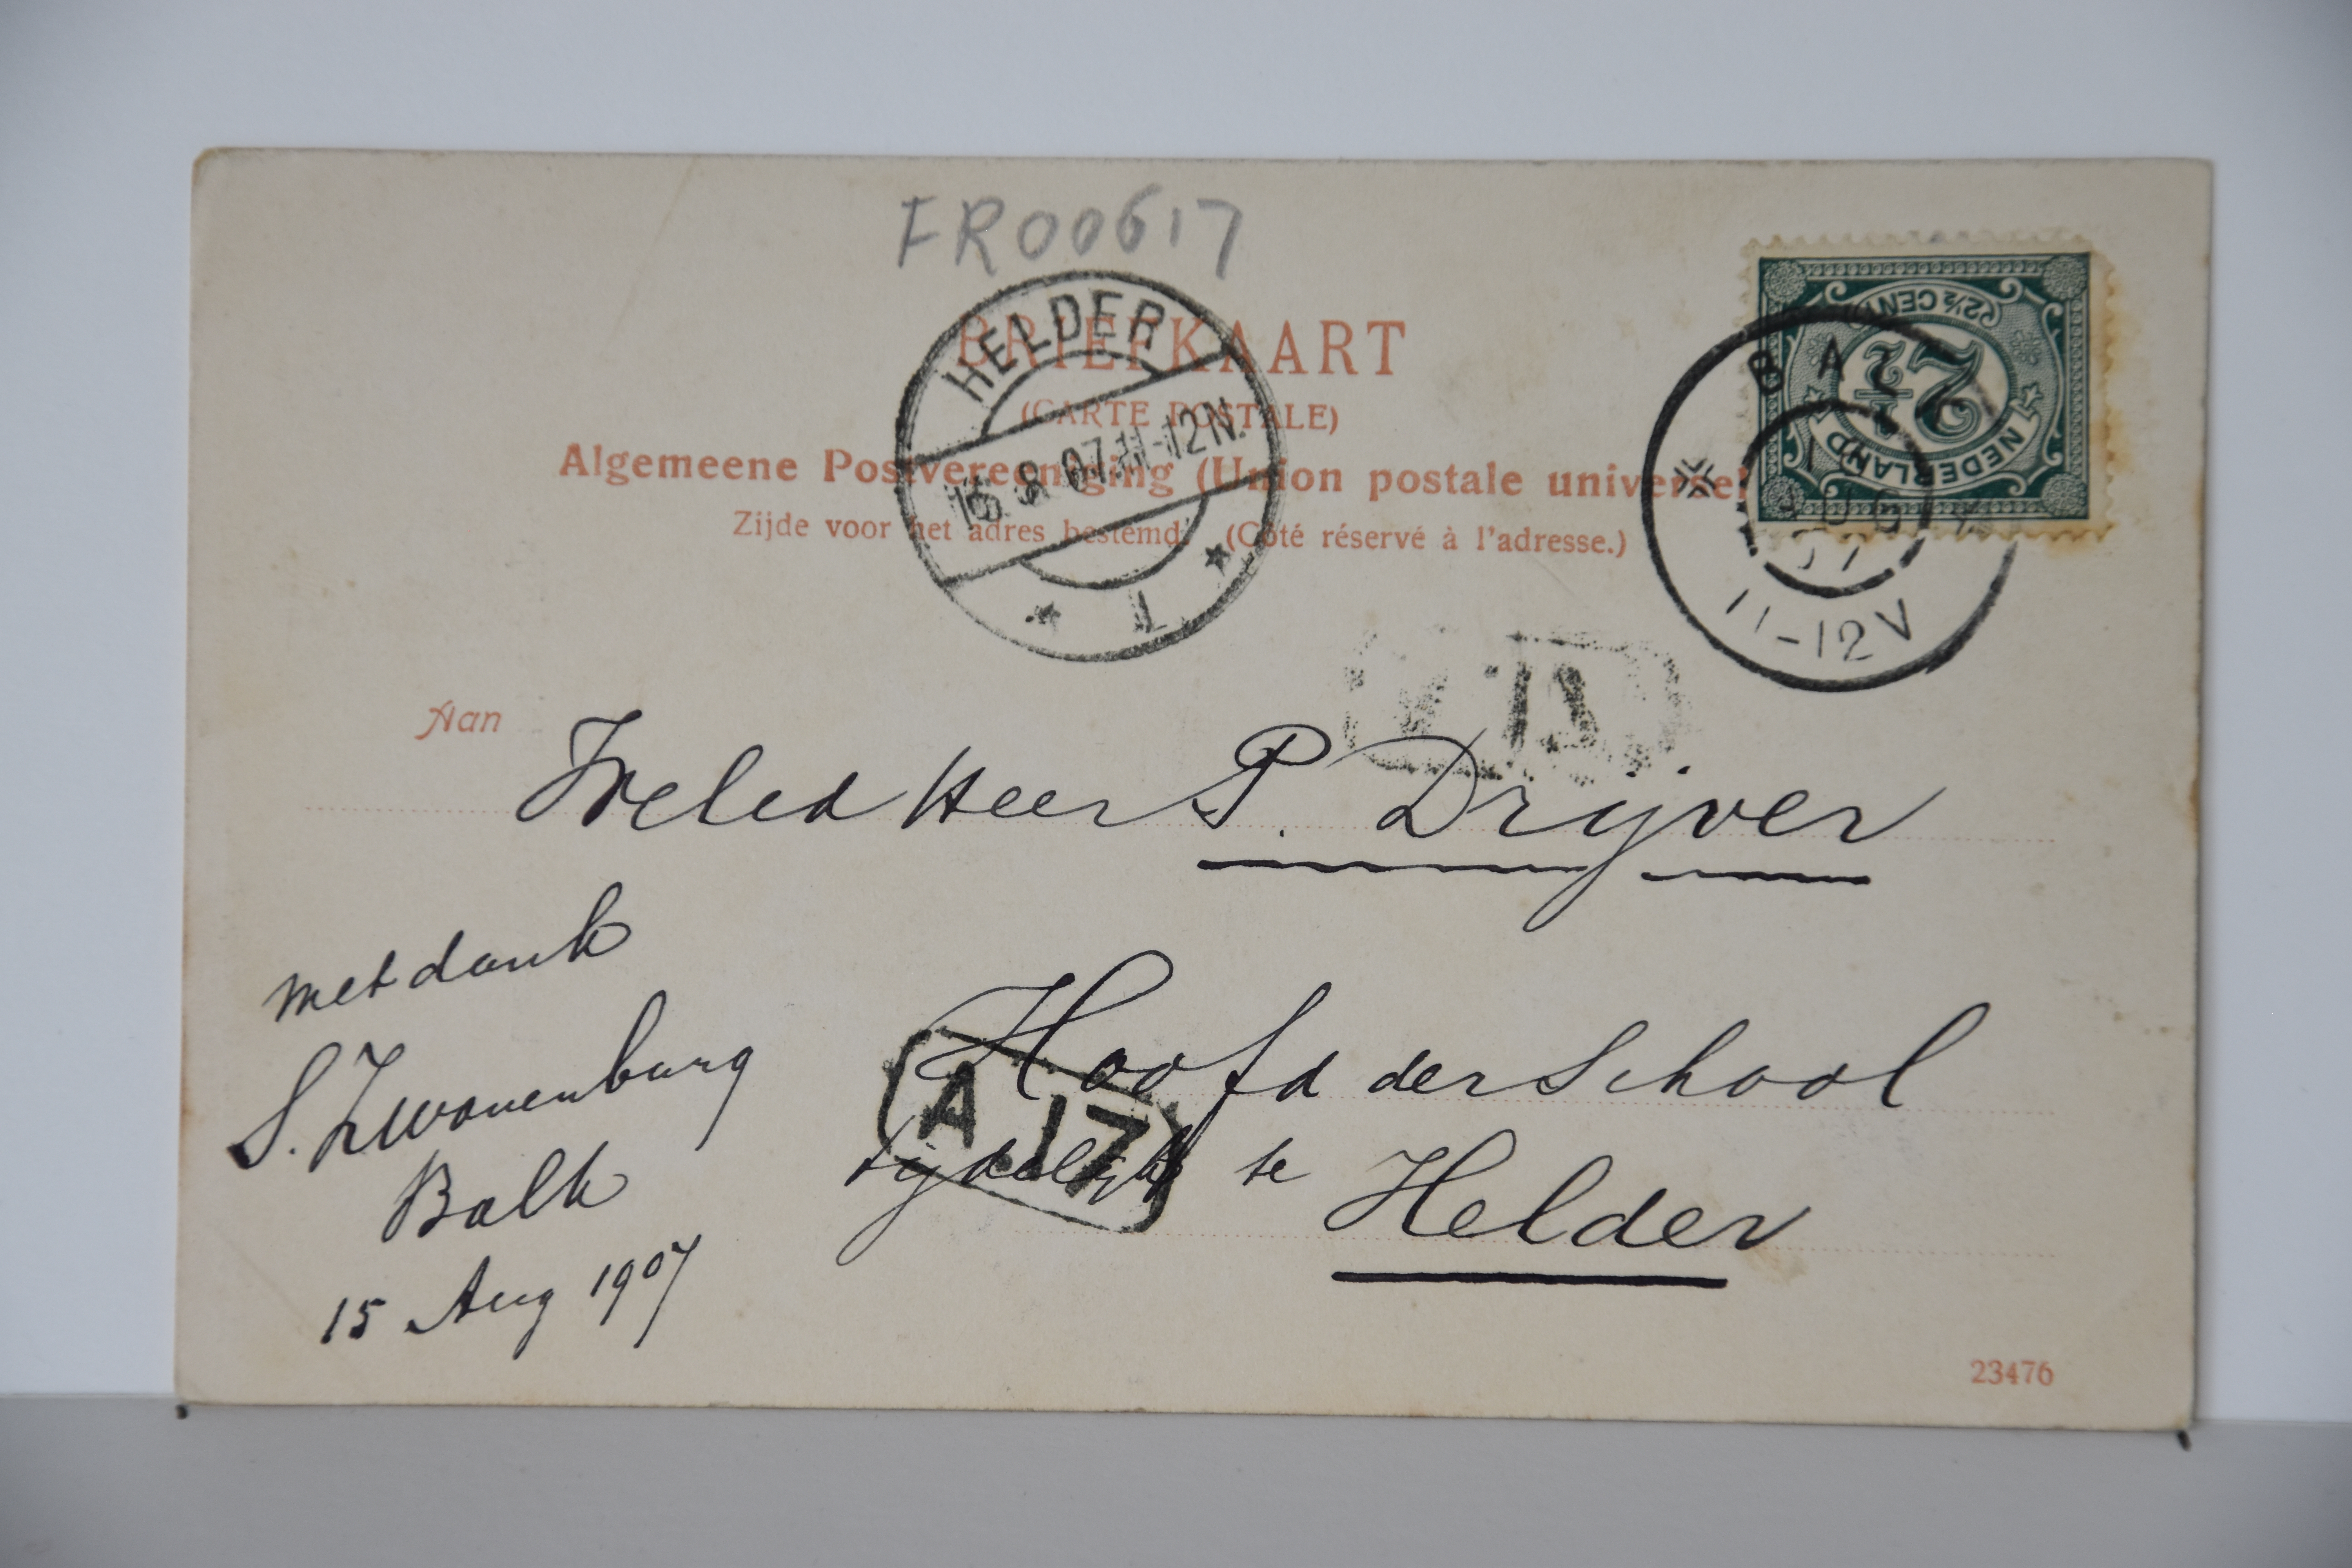 FR00617
BRIEFKAART
(CARTE POSTALE)
Algemeene Postvereeniging (Union postale universel
Zijde voor het adres bestemd. (Côté réservé à l'adresse.)
HELDER
15.8.07.11-12N.
1
2½ CENT
2½
NEDERLAND
BAL
AUG
07
11-12V
Aan
WelEd Heer P. Drijver
Hoofd der School
tijdelijk te Helder
A.17
met dank
S. Zwanenburg
Balk
15 Aug 1907
23476